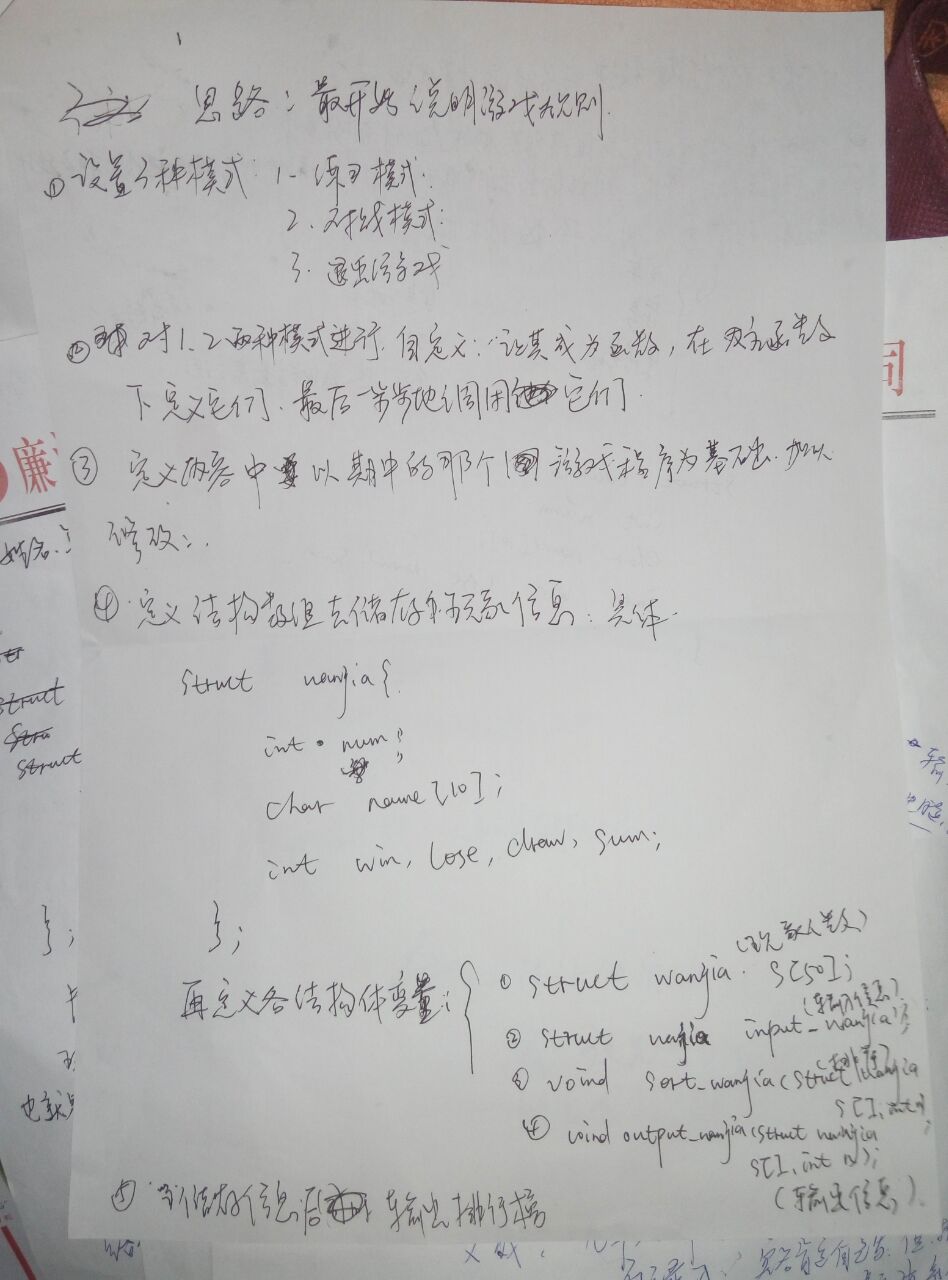 思路：最开始说明游戏规则.
①设置3种模式：1.练习模式.
2.对战模式.
3.退出游戏
②对1、2两种模式进行自定义：让其成为函数，在主函数
下定义它们.最后一步步地调用它们.
③定义内容中以期中的那个游戏程序为基础.加以
修改：.
④定义结构数组去储存玩家信息：具体.
struct wanjia{
int num;
char name[10];
int win, lose, draw, sum;
};
(玩家人数)
再定义各结构体变量：①struct wanjia. s[50];
(输入信息)
②struct wanjia input_wanjia();
(排序)
③voind sort_wanjia(struct wanjia
s[], int n);
④voind output_wanjia(struct wanjia
s[], int n);
(输出信息).
⑤储存信息后输出排行榜
同
廉
姓名：
struct
struct
struct
};
也就是